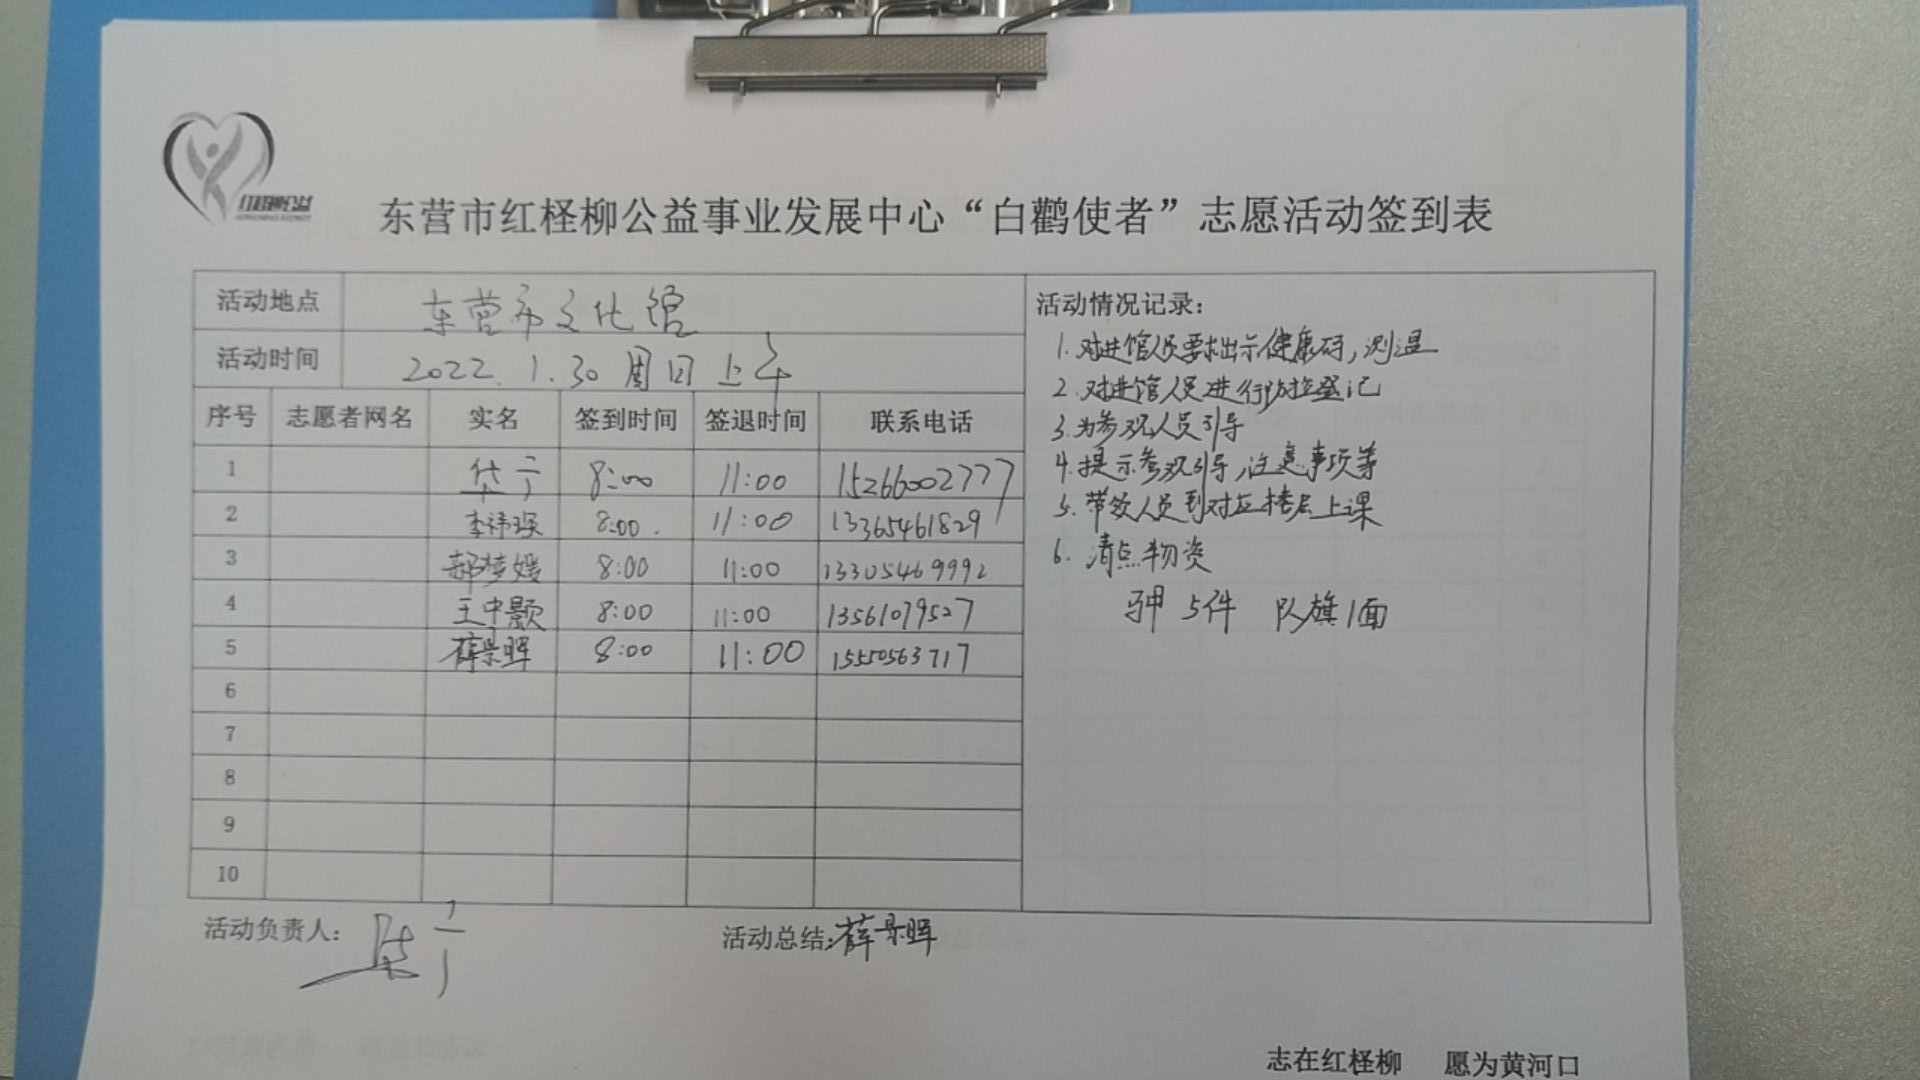 红柽柳公益
东营市红柽柳公益事业发展中心“白鹳使者”志愿活动签到表
活动地点 东营市文化馆
活动时间 2022.1.30 周日上午
序号 志愿者网名 实名 签到时间 签退时间 联系电话
1 8:00 11:00 15266002777
2 李祎琛 8:00. 11:00 13365461829
3 郝梦媛 8:00 11:00 13305469992
4 王中颢 8:00 11:00 13561079527
5 薛景晖 8:00 11:00 15550563717
6
7
8
9
10
活动情况记录:
1.对进馆人员要求出示健康码,测温
2.对进馆人员进行防控登记
3.为参观人员引导
4.提示参观引导,注意事项等
5.带领人员到对应楼层上课
6.清点物资
马甲 5件 队旗1面
活动负责人:
活动总结:薛景晖
志在红柽柳 愿为黄河口